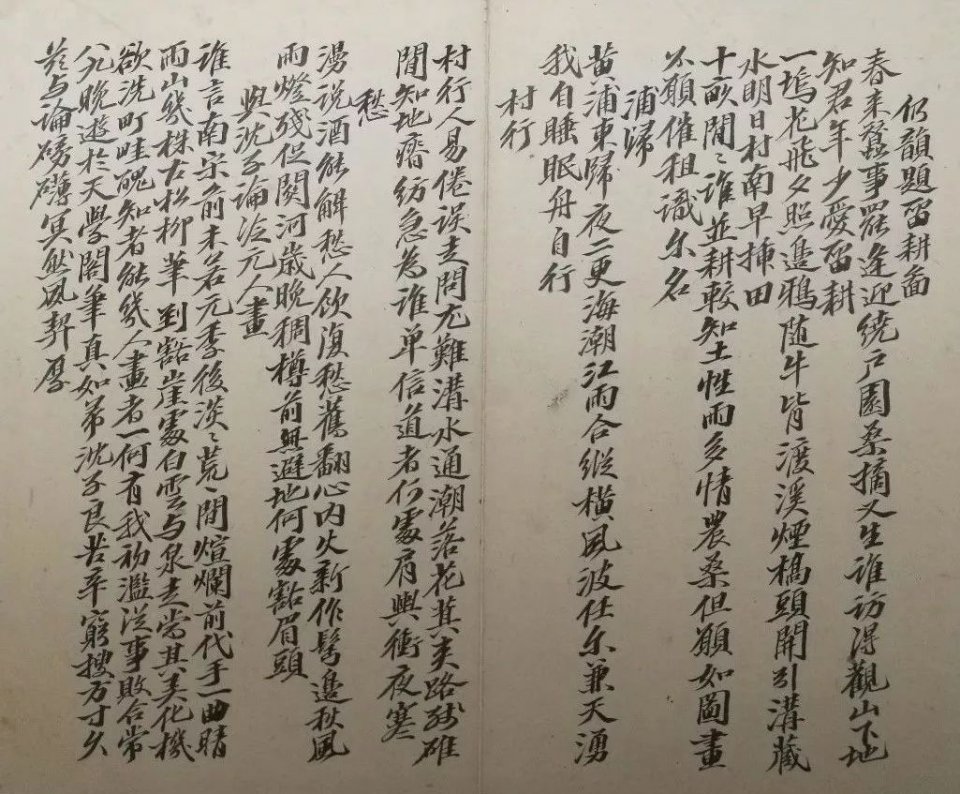 仍韻題留耕啚
春來蠶事罷逢迎繞戶園桑摘又生誰訪得觀山下地
知君年少愛留耕
一塢花飛夕照邊鴉隨牛背渡溪煙橋頭開引溝藏
水明日村南早插田
十畝閒〻誰並耕較知土性而多情農桑但願如圖畫
不願催租識尓名
浦歸
黃浦東歸夜二更海潮江雨合縱橫風波任尓兼天湧
我自睡眠舟自行
村行
村行人易倦誤走問尤難溝水通潮落花萁夾路殘碓
間知地瘠紡急為誰單信道者何處肩輿衝夜寒
愁
漫說酒能解愁人飲復愁舊翻心內火新作鬢邊秋風
雨燈殘促關河歲晚稠樽前無避地何處豁眉頭
與沈子論元人畫
誰言南宗前未若元季後淡〻荒〻間煊爛前代手一曲晴
雨山幾株古松柳筆到豁崖處白雲与泉走當其美化機
欲洗町畦醜知者能幾人畫者一何有我初濫從事敗合常
晚遊於天學閣筆真如帚沈子良苦辛窮搜方寸久
茲与論磅礴冥然風契厚